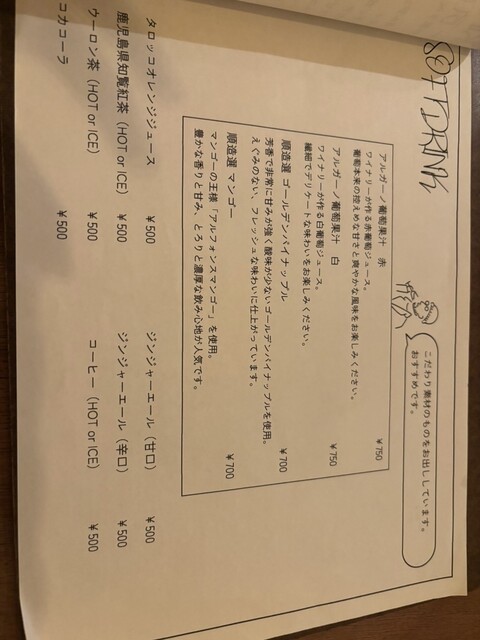 SOFT DRINK
こだわり素材のものをお出ししています。
おすすめです。
アルガーノ葡萄果汁 赤 ¥750
ワイナリーが作る赤葡萄ジュース。
葡萄本来の控えめな甘さと爽やかな風味をお楽しみください。
アルガーノ葡萄果汁 白 ¥750
ワイナリーが作る白葡萄ジュース。
繊細でデリケートな味わいをお楽しみください。
順造選 ゴールデンパイナップル ¥700
芳香で非常に甘みが強く酸味が少ないゴールデンパイナップルを使用。
えぐみのない、フレッシュな味わいに仕上がっています。
順造選 マンゴー ¥700
マンゴーの王様「アルフォンスマンゴー」を使用。
豊かな香りと甘み、とろりと濃厚な飲み心地が人気です。
タロッコオレンジジュース ¥500
鹿児島県知覧紅茶 (HOT or ICE) ¥500
ウーロン茶 (HOT or ICE) ¥500
コカコーラ ¥500
ジンジャーエール (甘口) ¥500
ジンジャーエール (辛口) ¥500
コーヒー (HOT or ICE) ¥500